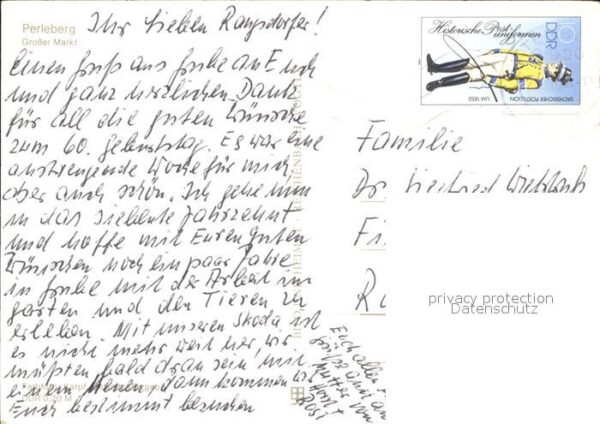 Perleberg
Großer Markt
Ihr lieben Rangsdorfer!
Einen Gruß aus Grube an Euch
und ganz herzlichen Dank
für all die guten Wünsche
zum 60. Geburtstag. Es war eine
anstrengende Woche für mich,
aber auch schön. Ich gehe nun
in das siebente Jahrzehnt
und hoffe mit Euren guten
Wünschen noch ein paar Jahre
in Grube mit der Arbeit im
Garten und den Tieren zu
erleben. Mit unseren Skoda ist
es nicht mehr weit her, wir
müßten bald dran sein, mit
einem neuen, dann kommen wir
Euch bestimmt besuchen
Euch allen
Grüße
Mutter von
Horst
Rosi
Historische Postuniformen
10
DDR
SÄCHSISCHER POSTILLION
UM 1850
Familie
Dr.
Fi
Ra
privacy protection
Datenschutz
0,20 M